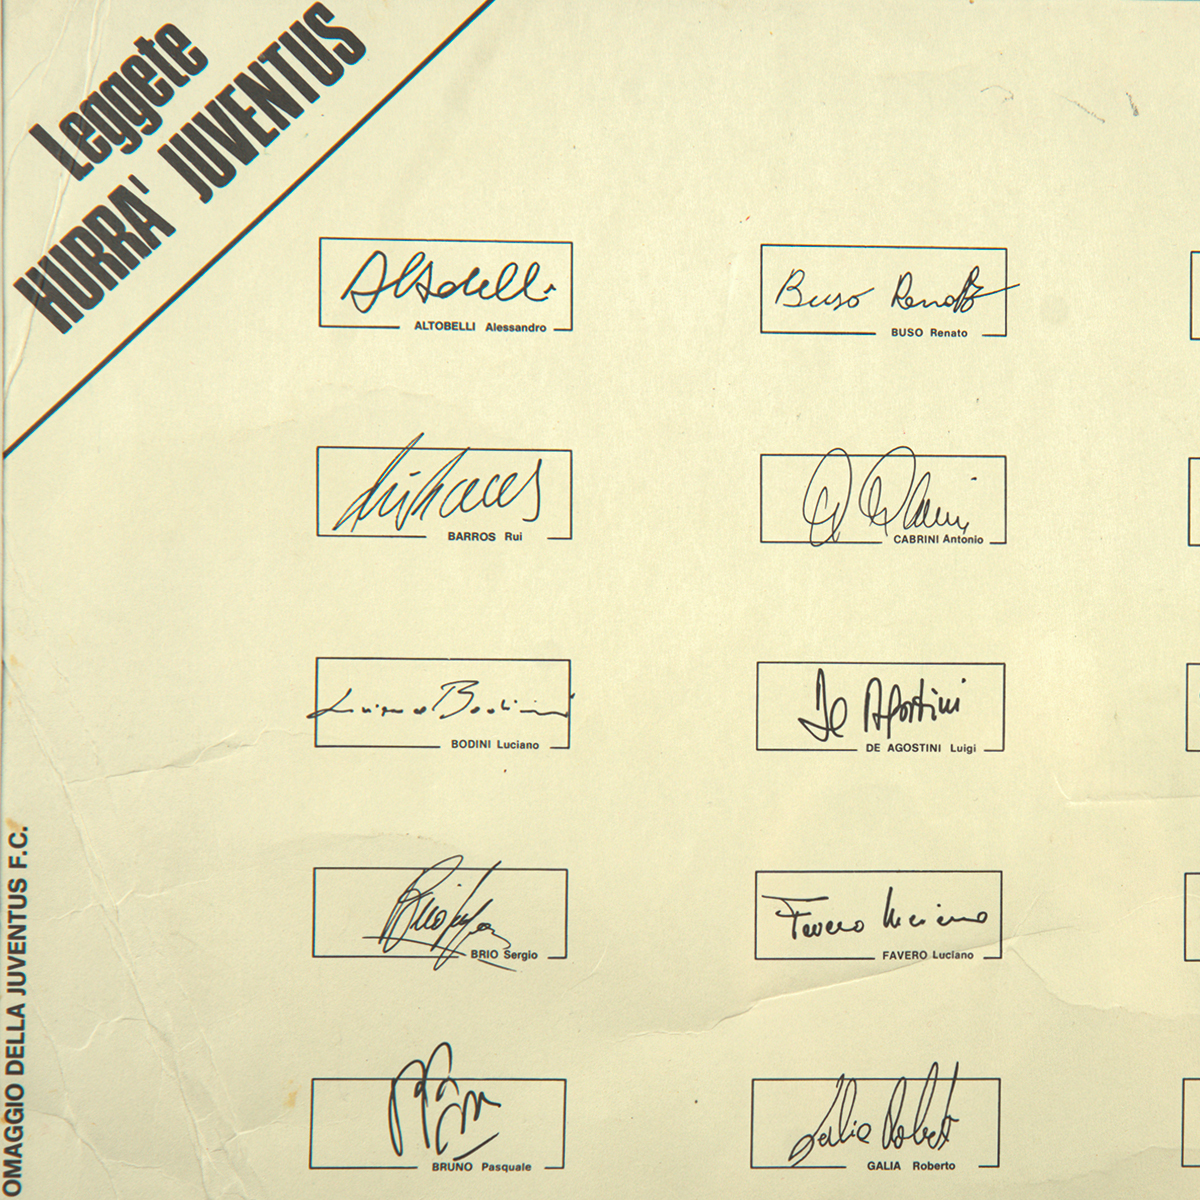 Leggete
HURRA' JUVENTUS
Altobelli
ALTOBELLI Alessandro
Buso Renato
BUSO Renato
Rui Barros
BARROS Rui
CABRINI Antonio
Luciano Bodini
BODINI Luciano
De Agostini
DE AGOSTINI Luigi
BRIO Sergio
Favero Luciano
FAVERO Luciano
BRUNO Pasquale
Galia Roberto
GALIA Roberto
OMAGGIO DELLA JUVENTUS F.C.